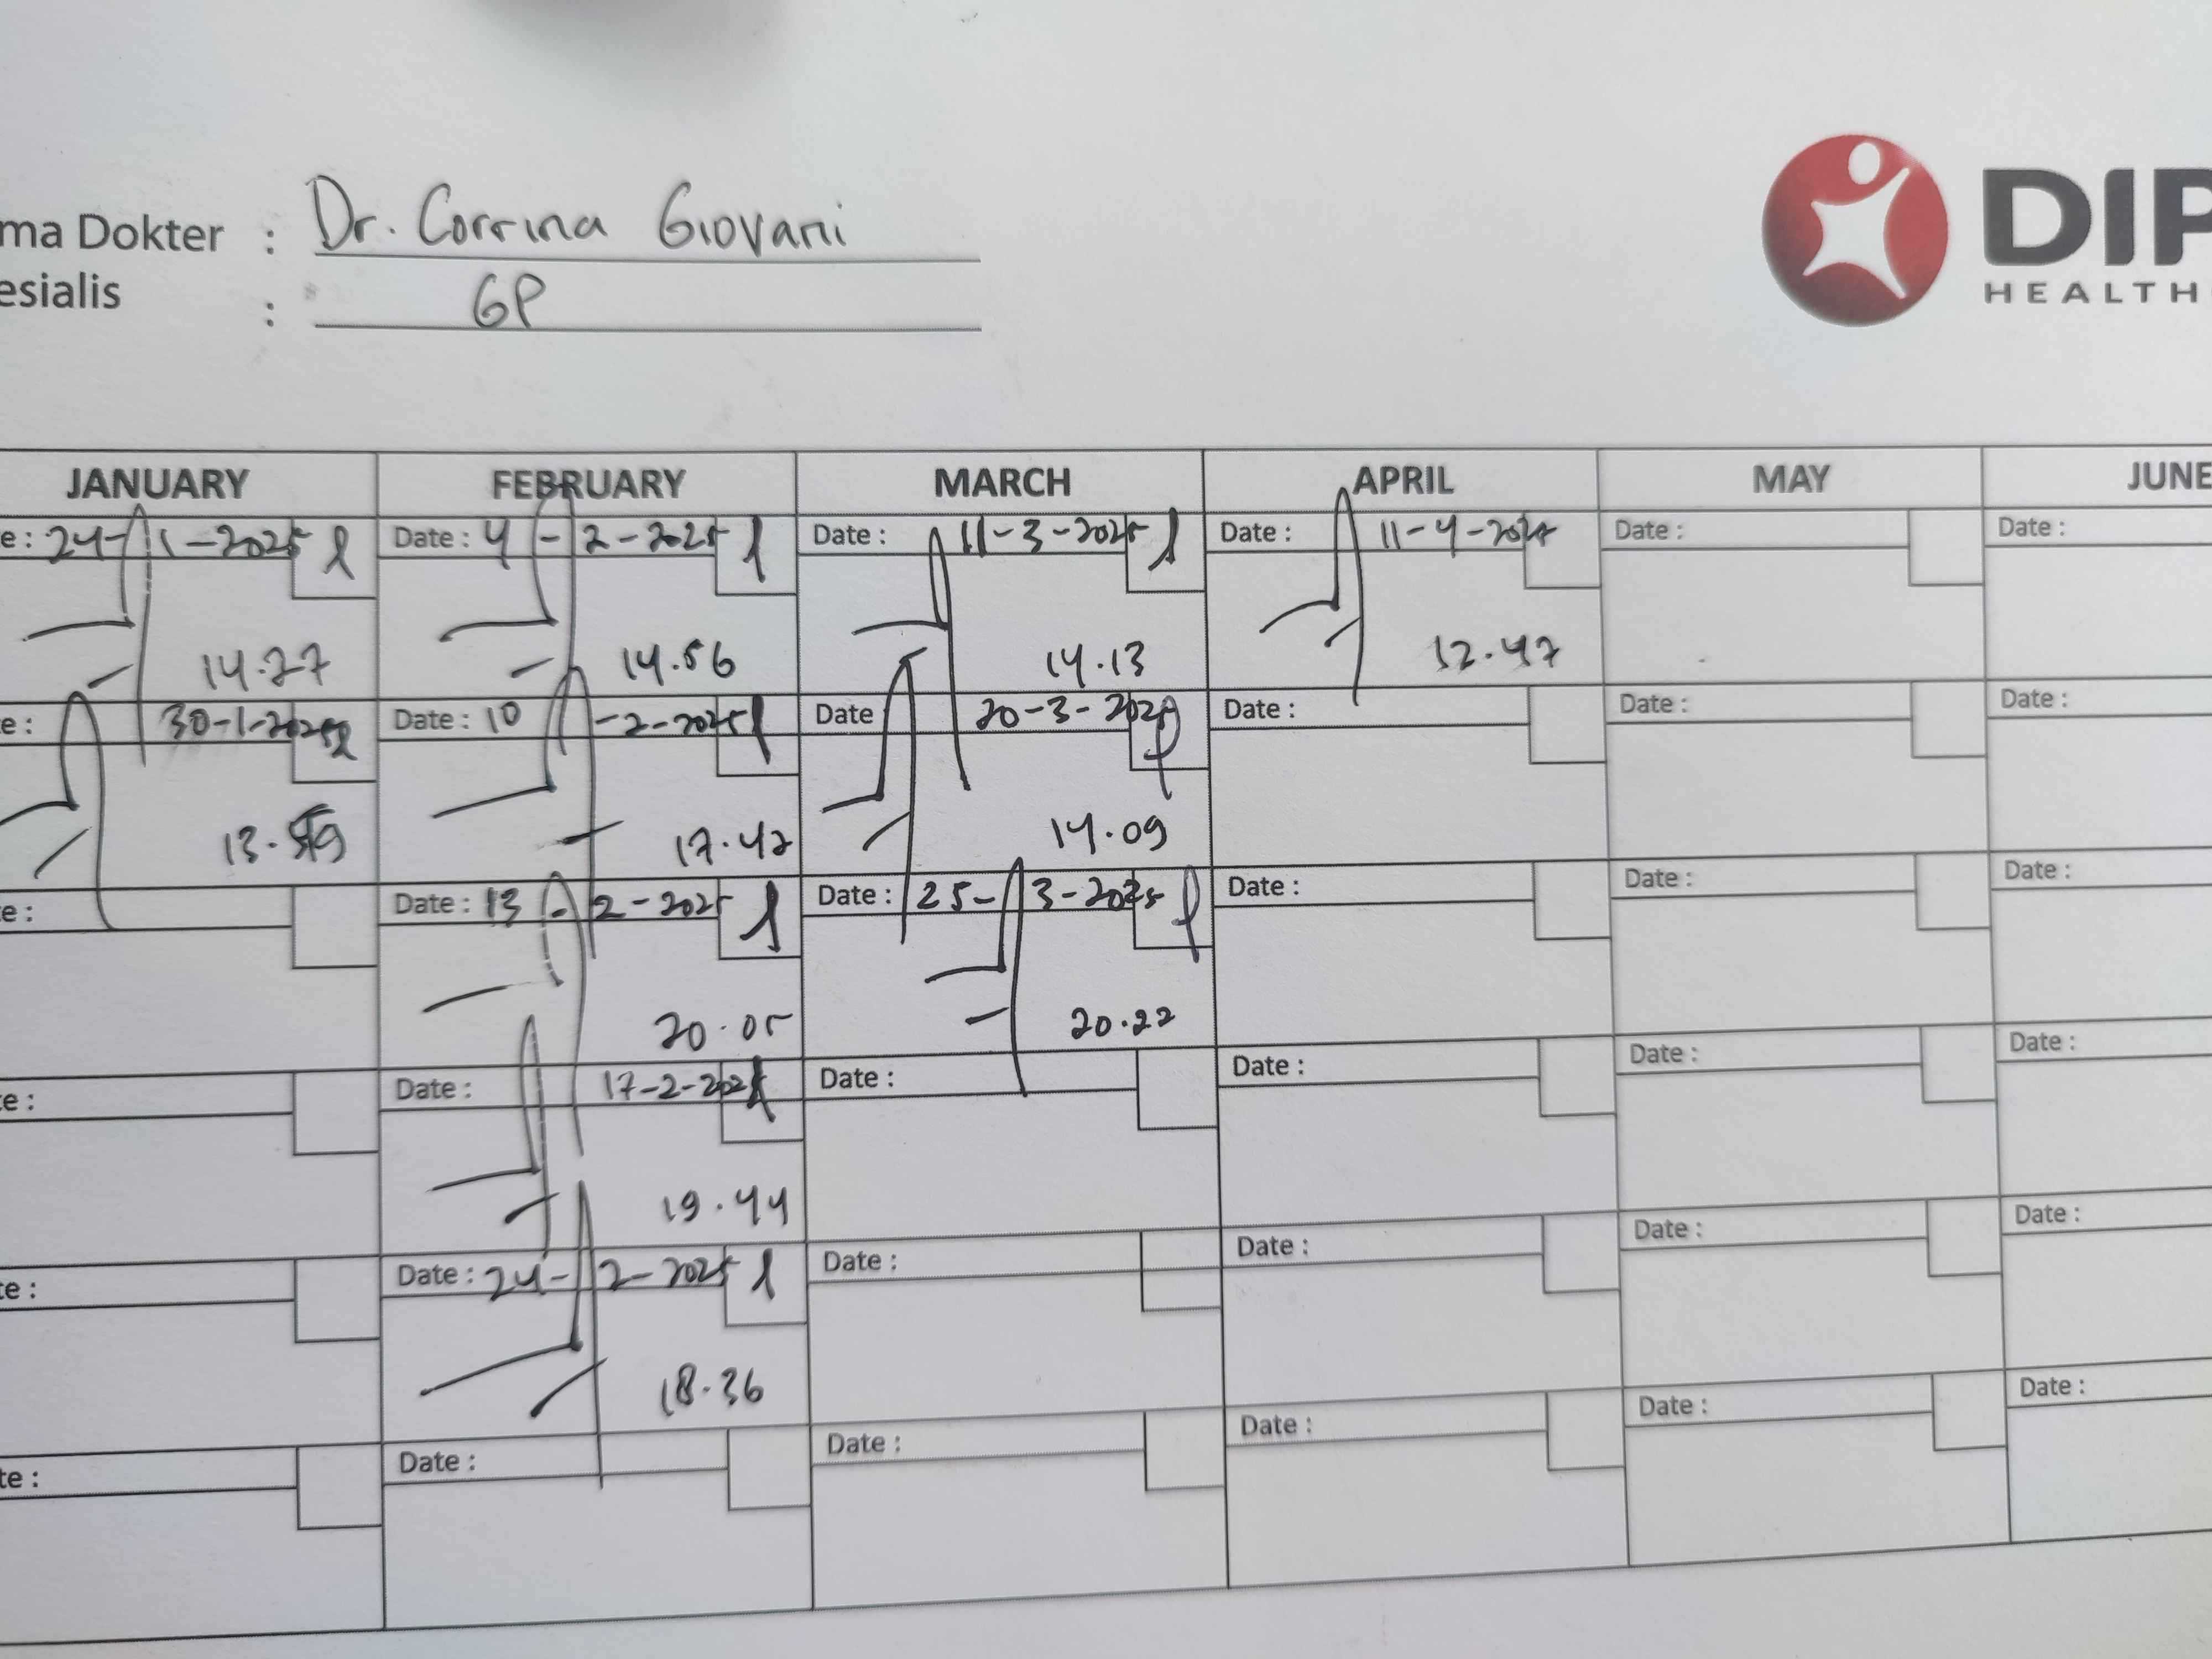 ma Dokter : Dr. Corrina Giovani
esialis : GP
DIP
HEALTH
JANUARY FEBRUARY MARCH APRIL MAY JUNE
e: 24-1-2025 Date: 4-2-2025 Date: 11-3-2025 Date: 11-4-2025 Date: Date:
14.27 14.56 14.13 12.47
e: 30-1-2025 Date: 10-2-2025 Date 20-3-2025 Date: Date: Date:
17.42 14.09
e: Date: 13-2-2025 Date: 25-3-2025 Date: Date: Date:
20.05 20.22
e: Date: 17-2-2025 Date: Date: Date: Date:
19.44
te: Date: 24-2-2025 Date: Date: Date: Date:
18.36
te: Date: Date: Date: Date: Date: